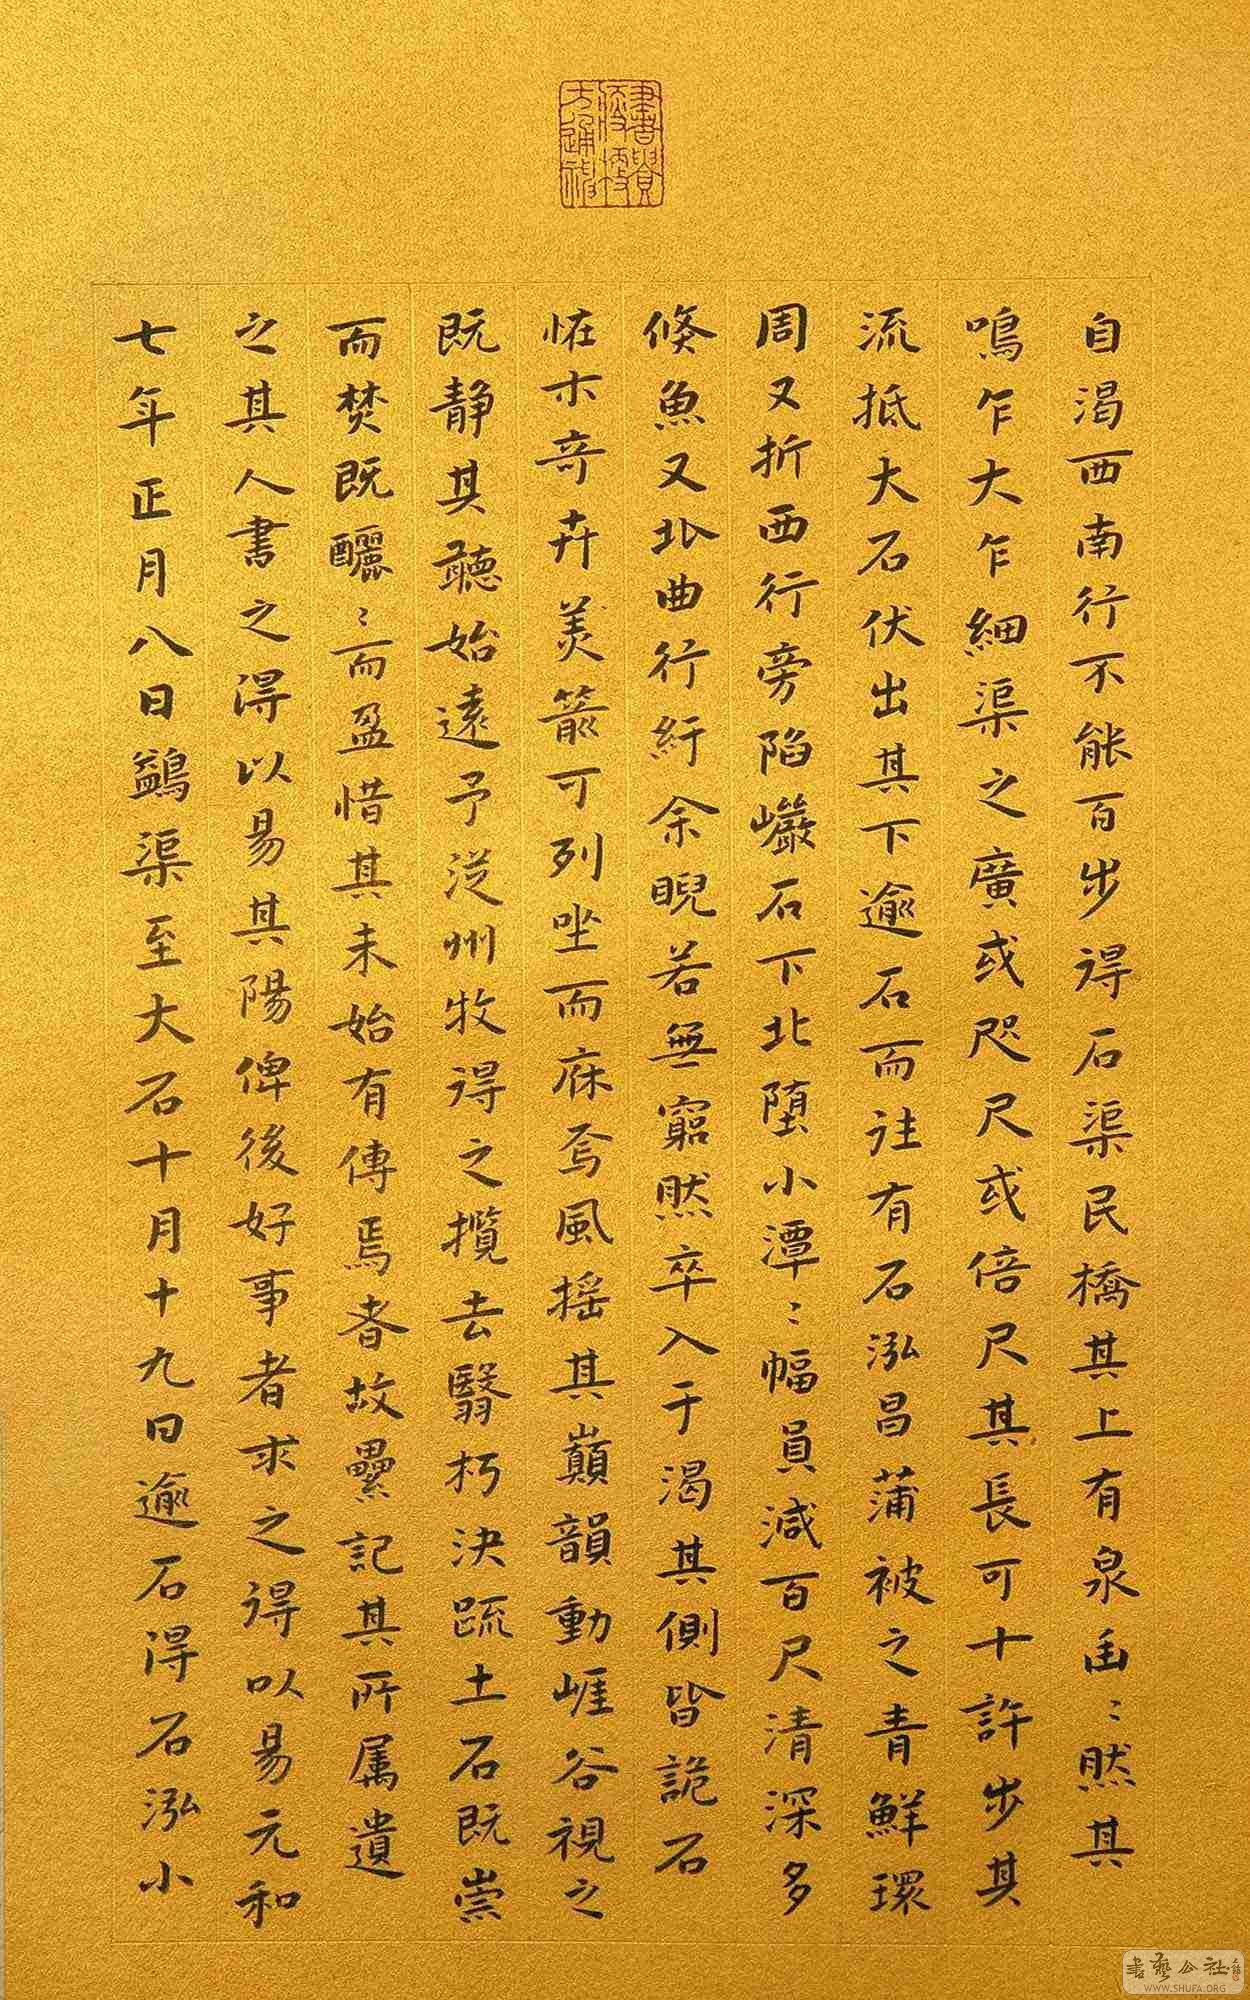 自渴西南行不能百步得石渠民橋其上有泉幽〻然其
鳴乍大乍細渠之廣或咫尺或倍尺其長可十許步其
流抵大石伏出其下逾石而往有石泓昌蒲被之青鮮環
周又折西行旁陷巖石下北堕小潭〻幅員減百尺清深多
倏魚又北曲行紆余睨若無窮然卒入于渴其側皆詭石
恠木奇卉美箭可列坐而庥焉風摇其巔韻動崕谷視之
既静其聽始遠予従州牧得之攬去翳朽决疏土石既崇
而焚既釃〻而盈惜其未始有傳焉者故纍記其所属遺
之其人書之得以易其陽俾後好事者求之得以易元和
七年正月八日鷁渠至大石十月十九日逾石得石泓小
書藝公社
WWW.SHUFA.ORG